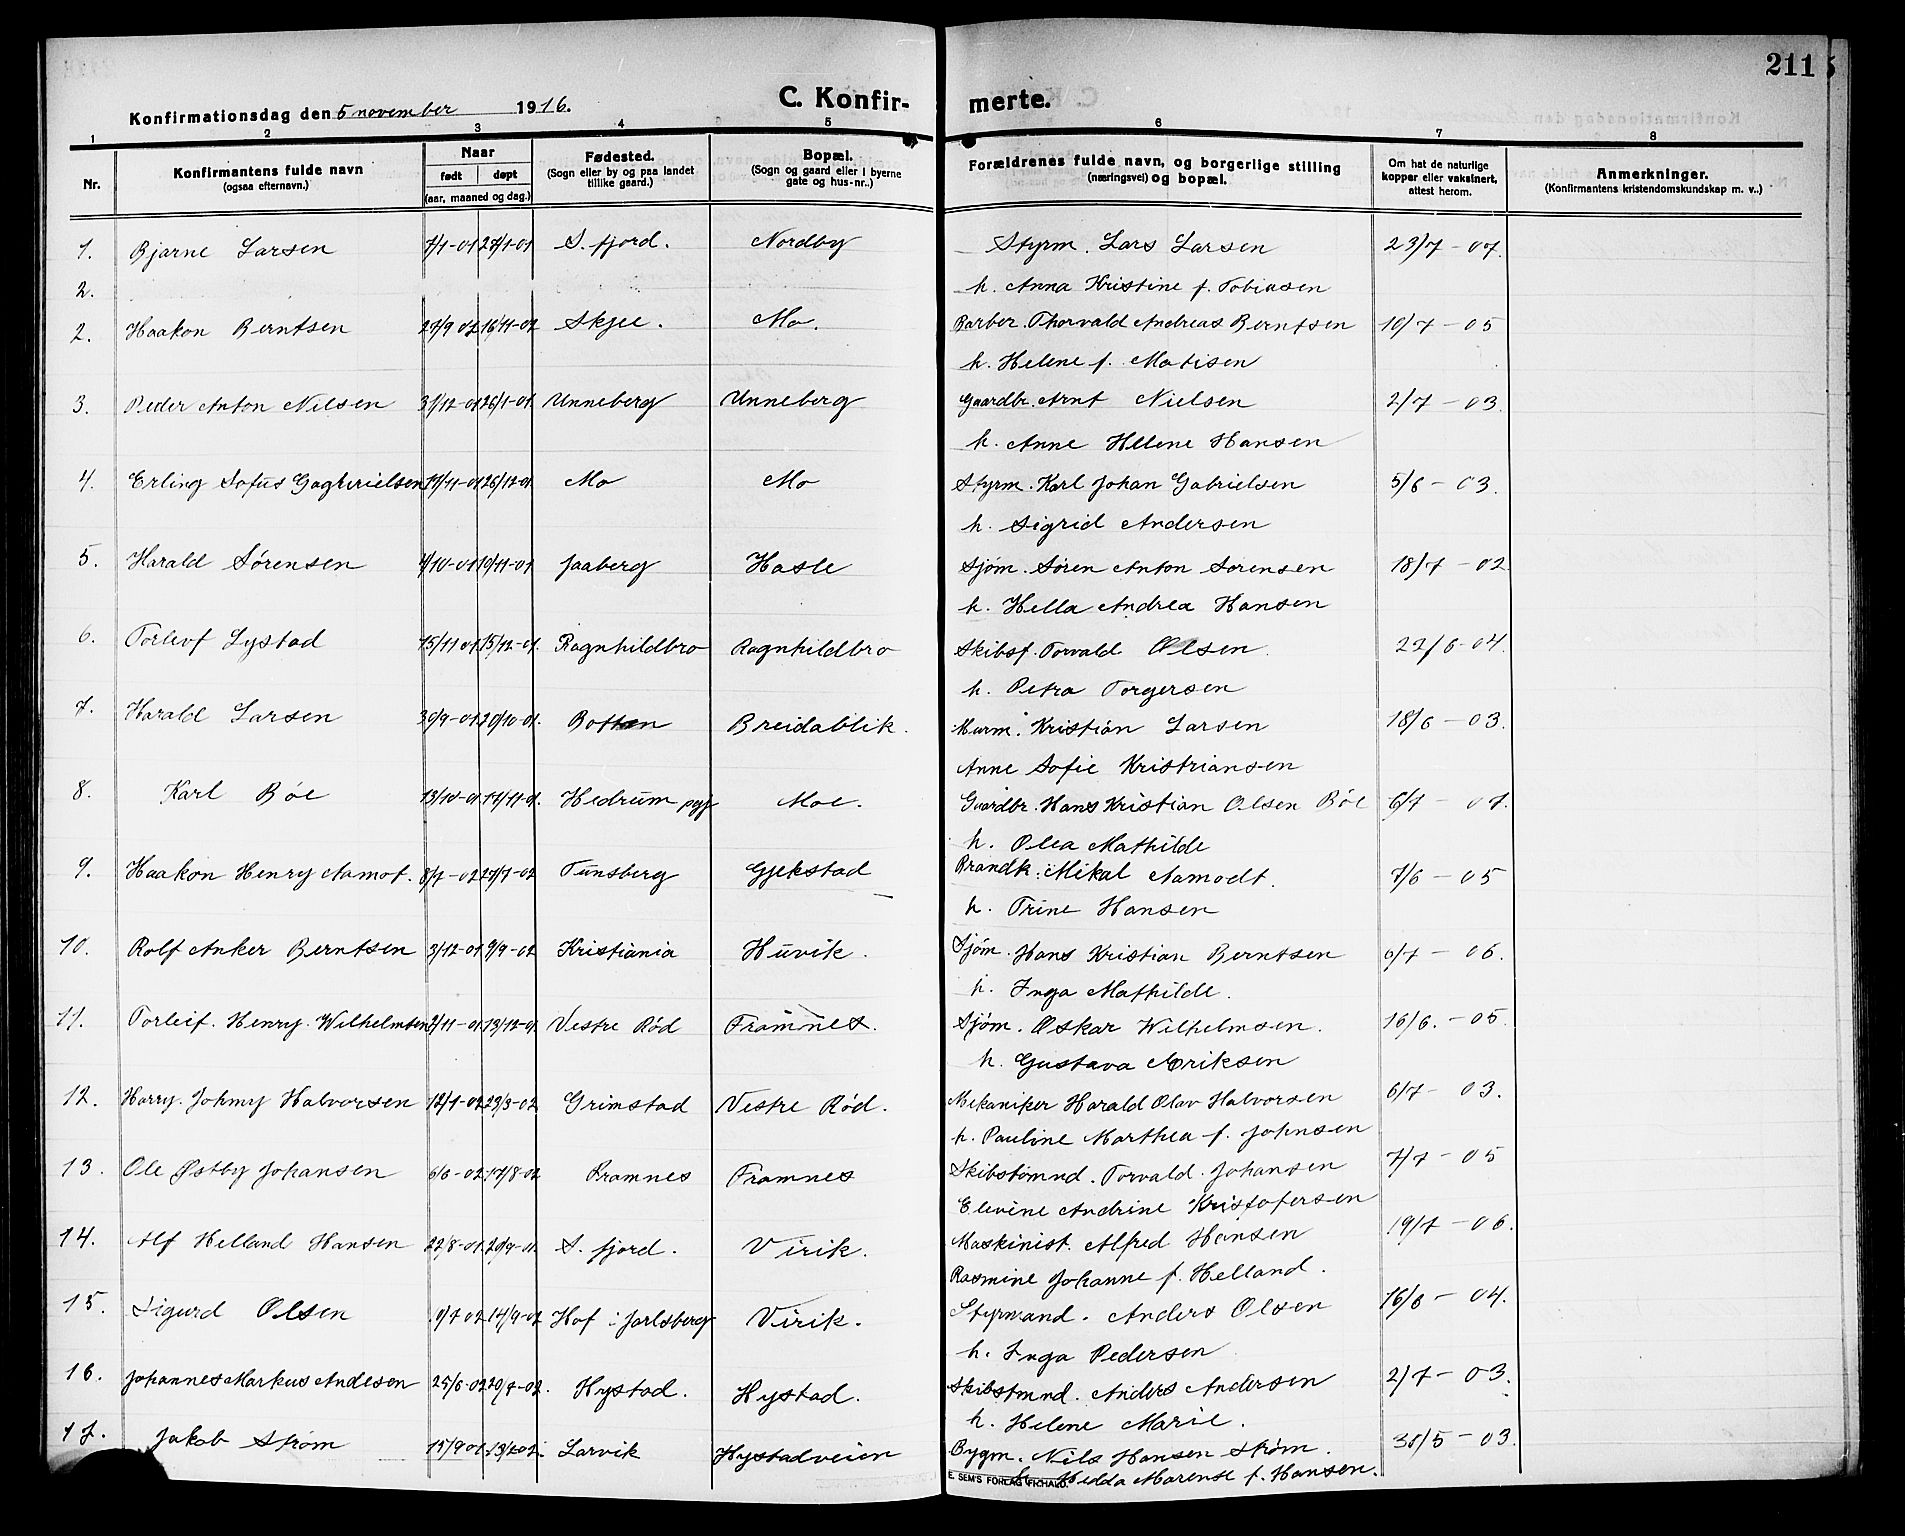 211
Konfirmationsdag den 5 november 1916.
C. Konfir- merte.
1 2 3 4 5 6 7 8
Nr. Konfirmantens fulde navn (ogsaa efternavn.) Naar født døpt (aar, maaned og dag.) Fødested. (Sogn eller by og paa landet tillike gaard.) Bopæl. (Sogn og gaard eller i byerne gate og hus-nr..) Forældrenes fulde navn, og borgerlige stilling (næringsvei) og bopæl. Om hat de naturlige kopper eller vaksinert, attest herom. Anmerkninger. (Konfirmantens kristendomskundskap m. v..)
1. Bjarne Larsen 7/1-01 27/1-01 S. fjord. Nordby Styrm. Lars Larsen 23/7-07.
2. h. Anna Kristine f. Tobiasen
2. Haakon Berntsen 27/9 02 16/11-02 Skjee. Mo. Barber. Thorvald Andreas Berntsen 10/7-05
h. Helene f. Matisen
3. Peder Anton Nilsen 31/12-01 26/1-01 Unneberg Unneberg Gaardbr. Arnt Nielsen 2/7-03.
h. Anne Helene Hansen
4. Erling Sofus Gaghrielsen 19/11-01 26/12-01 Mo Mo Styrm. Karl Johan Gabrielsen 5/6-03.
h. Sigrid Andersen
5. Harald Sørensen 4/10-01 10/11-01 Jaaberg Hasle Sjøm. Søren Anton Sørensen 18/7-02
h. Hella Andrea Hansen
6. Torleof Lystad 15/11 01. 15/12-01. Ragnhildbro Ragnhildbro Skibsf. Torvald Olsen. 22/6-04.
h. Petra Torgersen
7. Harald Larsen 30/9-01. 20/10-01. Botten Breidablik. Murm. Kristian Larsen 18/6-03.
Anne Sofie Kristriansen
8. Karl Bøe 13/10-01. 17/11-01. Hedrum pgj Moe. Gaardbr. Hans Kristian Olsen Bøe 6/7-07.
h. Olea Mathilde
9. Haakon Henry Aamot. 8/7-02 27/7-02 Tunsberg Gjekstad Brandk. Mikal Aamodt. 7/6-05
h. Trine Hansen
10. Rolf Anker Berntsen 3/12-01. 9/9-02 Kristiania Huvik. Sjøm. Hans Kristian Berntsen 6/7-06.
h. Inga Mathilde.
11. Torleif. Henry. Wilhelmsen 2/11-01. 13/12-01. Vestre Rød Framnes. Sjøm. Oskar Wilhelmsen. 16/6.-05.
h. Gustava Ariksen
12. Harry. Johnny Halvorsen 12/1-02 23/3-02 Grimstad Vestre Rød. Mekaniker Harald Olav Halvorsen 6/7-03.
h. Pauline Marthea f. Johnsen
13. Ole Østby Johansen 6/6-02. 17/8-02 Framnes Framnes Skibstømnd. Torvald Johansen 7/7-05
Elevine Andrine Kristofersen
14. Alf Helland Hansen 22/8-01. 20/9-01. S. fjord. Virik. Maskinist. Alfred Hansen 19/7-06.
Rasmine Johanne f. Helland.
15. Sigurd Olsen 9/7 02. 14/9-02 Hof i Jarlsberg Virik. Styrmand. Anders Olsen 16/6-04.
h. Inga Pedersen
16. Johannes Markus Andesen 25/6-02 20/7-02. Hystad. Hystad. Skibstmnd. Anders Andersen 2/7-03.
h. Helene Marie.
17. Jakob Strøm 15/9 01. Larvik Hystadveien Bygm. Nils Hansen Strøm. 31/5-03.
h. Hedda Marense f. Hansen.
E. SEM'S FORLAG FR.HALD.